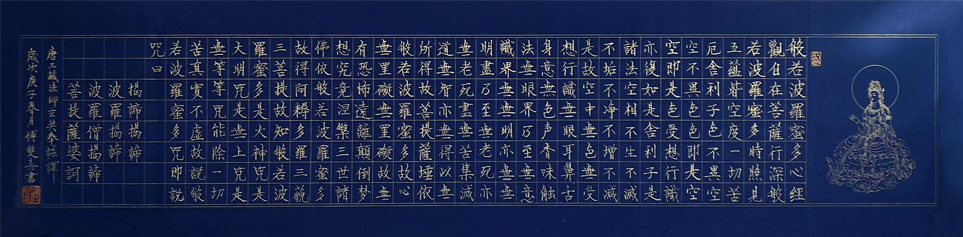 般若波羅蜜多心經
觀自在菩薩行深般
若波羅蜜多時照見
五蘊皆空度一切苦
厄舍利子色不異空
空不異色色即是空
空即是色受想行識
亦復如是舍利子是
諸法空相不生不滅
不垢不淨不增不減
是故空中無色無受
想行識無眼耳鼻舌
身意無色声香味触
法無眼界乃至無意
識界無無明亦無無
明盡乃至無老死亦
無老死盡無苦集滅
道無智亦無得以無
所得故菩提薩埵依
般若波羅蜜多故心
無罣礙無罣礙故無
有恐怖遠離顛倒夢
想究竟涅槃三世諸
佛依般若波羅蜜多
故得阿耨多羅三藐
三菩提故知般若波
羅蜜多是大神咒是
大明咒是無上咒是
無等等咒能除一切
苦真實不虛故說般
若波羅蜜多咒即說
咒曰
揭諦揭諦
波羅揭諦
波羅僧揭諦
菩提薩婆訶
唐三藏法師玄奘奉詔譯
歲次庚子春月傅書